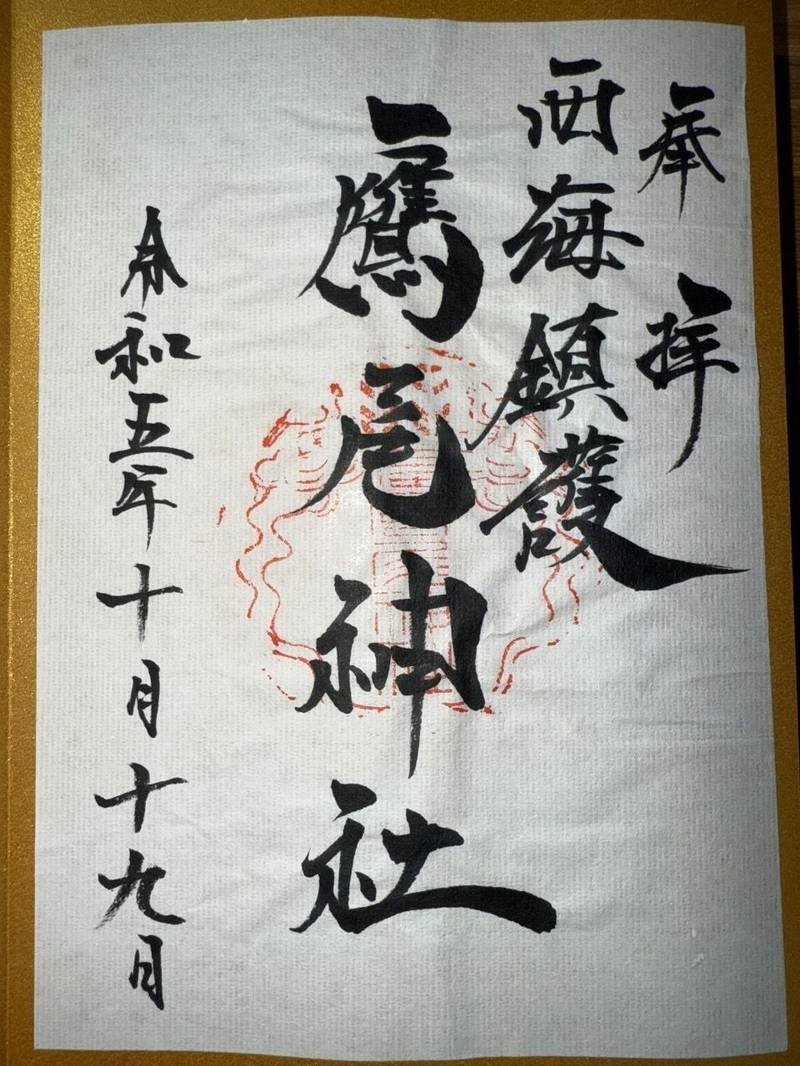 奉拝
西海鎮護
鷹尾神社
令和五年十月十九日